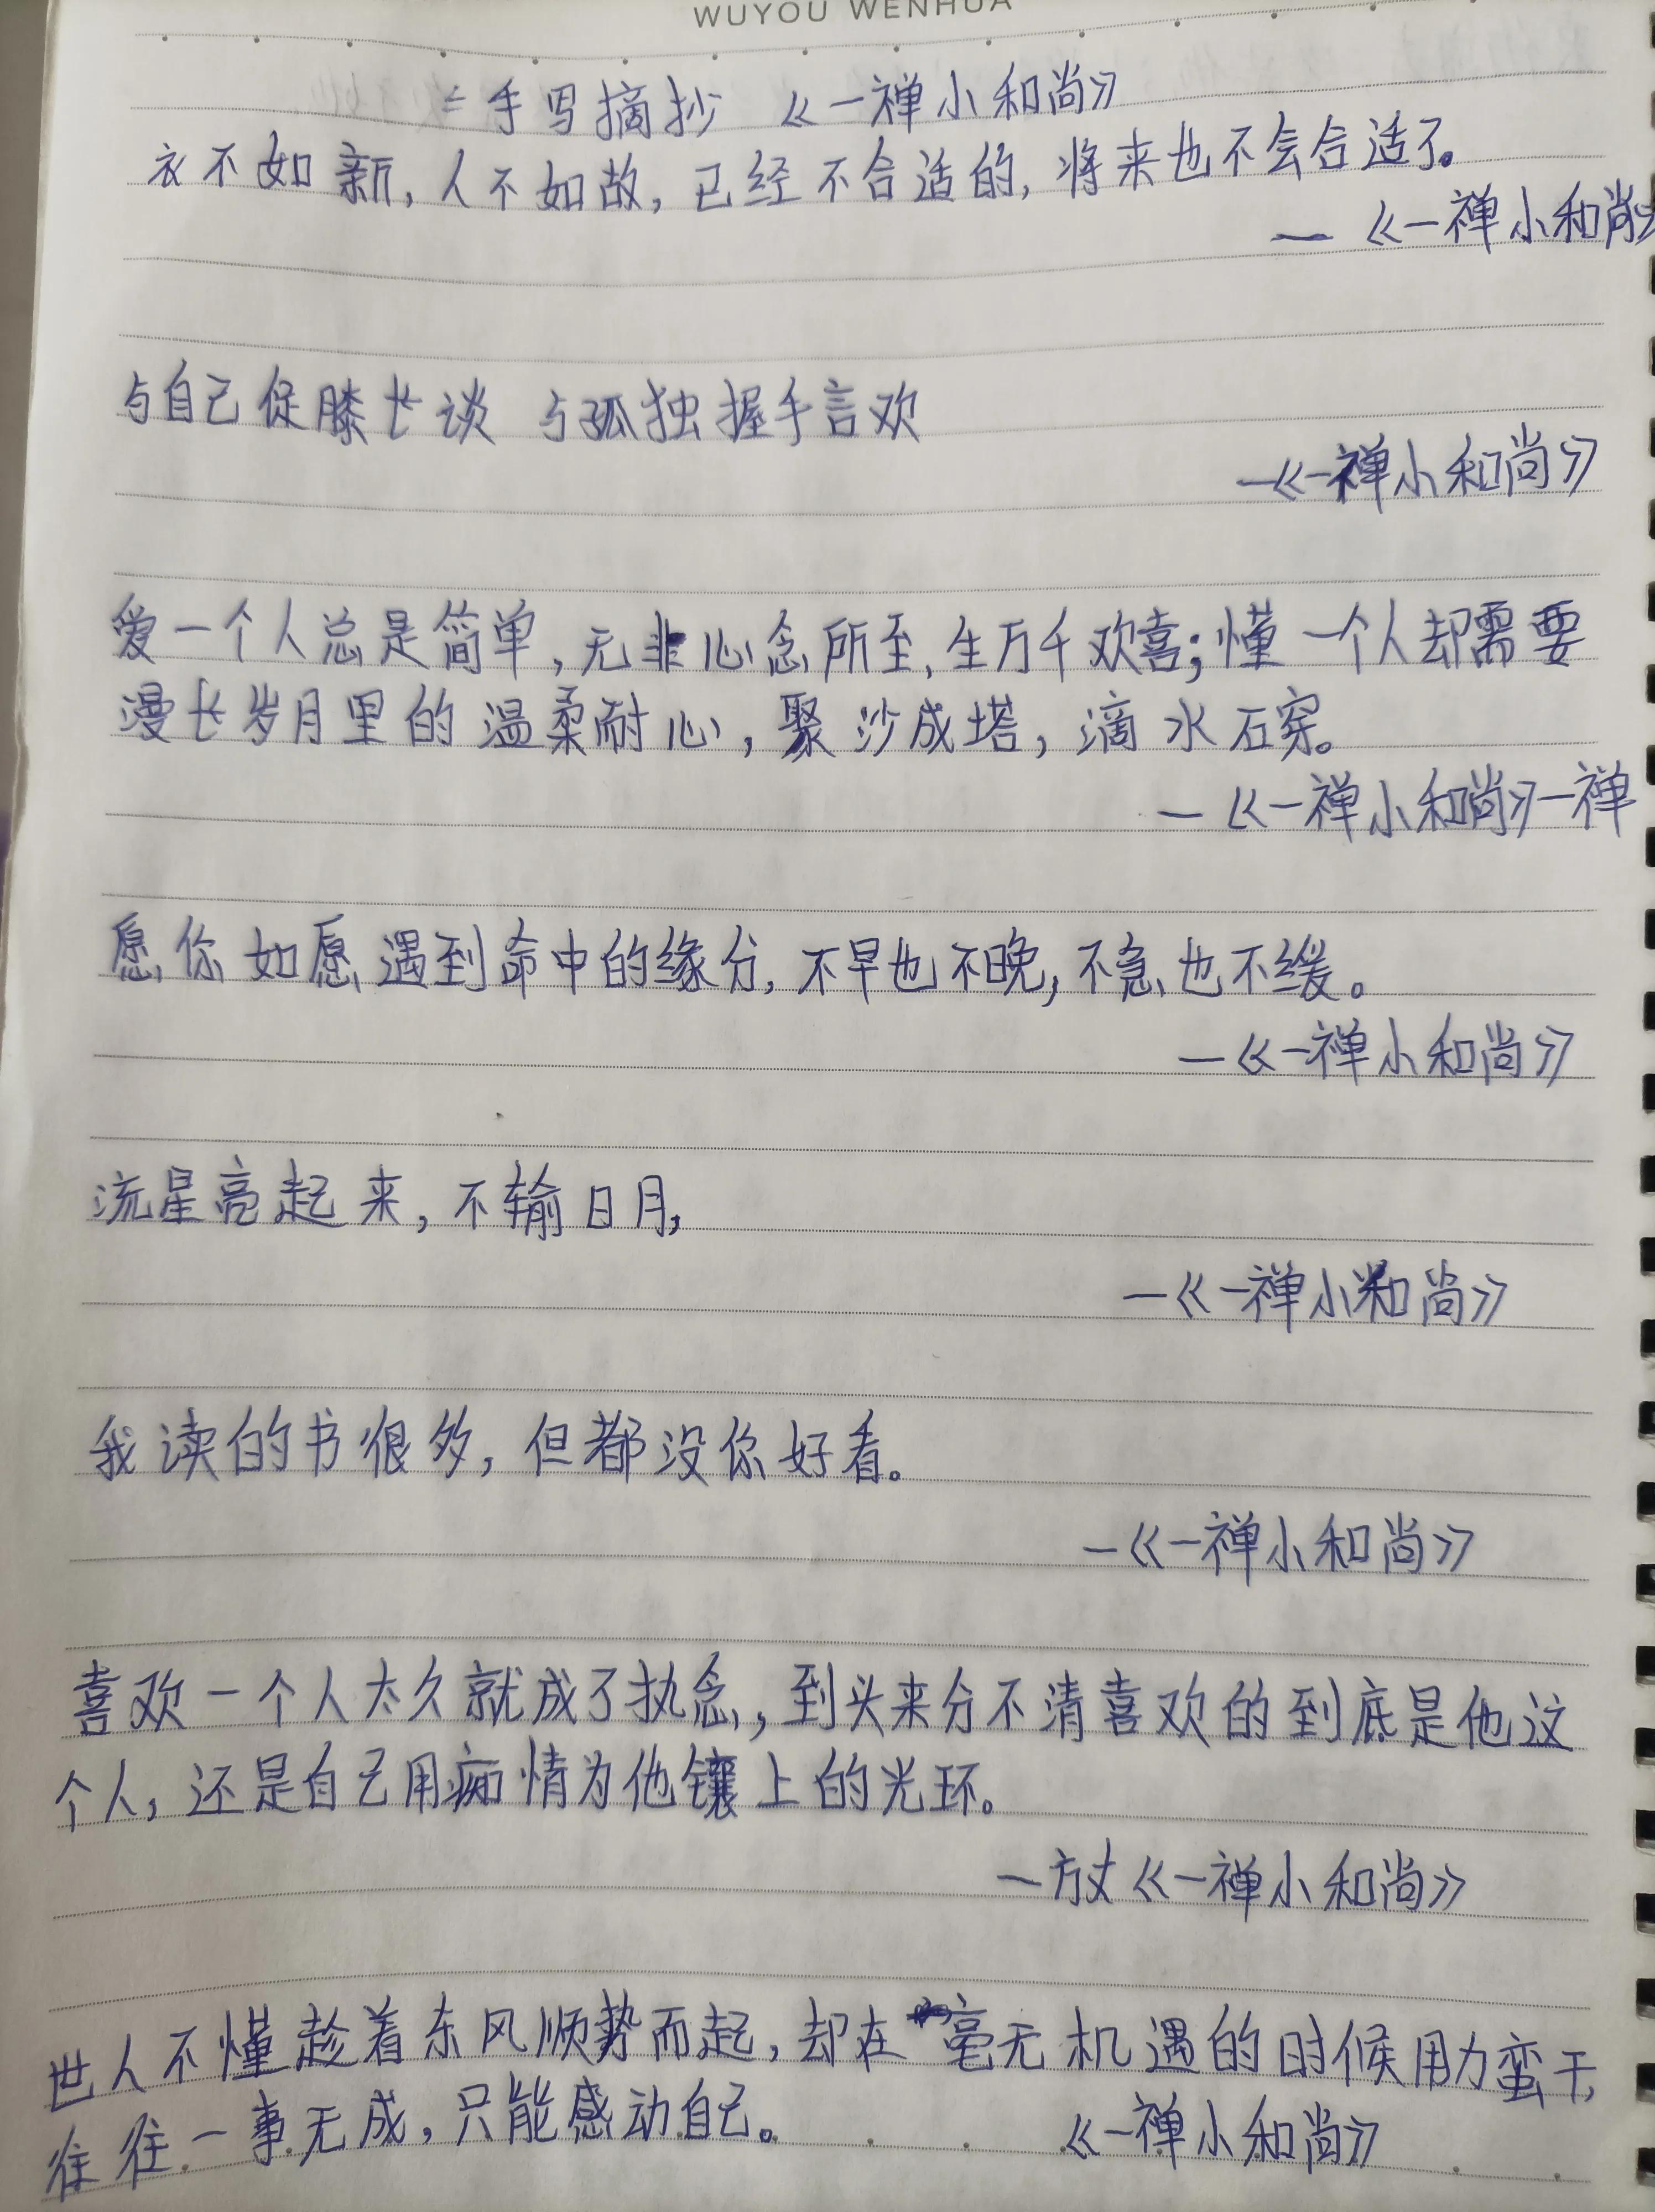 WUYOU WENHUA
二手写摘抄 《一禅小和尚》
衣不如新,人不如故,已经不合适的,将来也不会合适了。
— 《一禅小和尚》
与自己促膝长谈 与孤独握手言欢
—《一禅小和尚》
爱一个人总是简单,无非心念所至,生万千欢喜;懂一个人却需要
漫长岁月里的温柔耐心,聚沙成塔,滴水石穿。
— 《一禅小和尚》一禅
愿你如愿遇到命中的缘分,不早也不晚,不急也不缓。
—《一禅小和尚》
流星亮起来,不输日月,
—《一禅小和尚》
我读的书很多,但都没你好看。
—《一禅小和尚》
喜欢一个人太久就成了执念,到头来分不清喜欢的到底是他这
个人,还是自己用痴情为他镶上的光环。
—方丈《一禅小和尚》
世人不懂趁着东风顺势而起,却在毫无机遇的时候用力蛮干,
往往一事无成,只能感动自己。 《一禅小和尚》